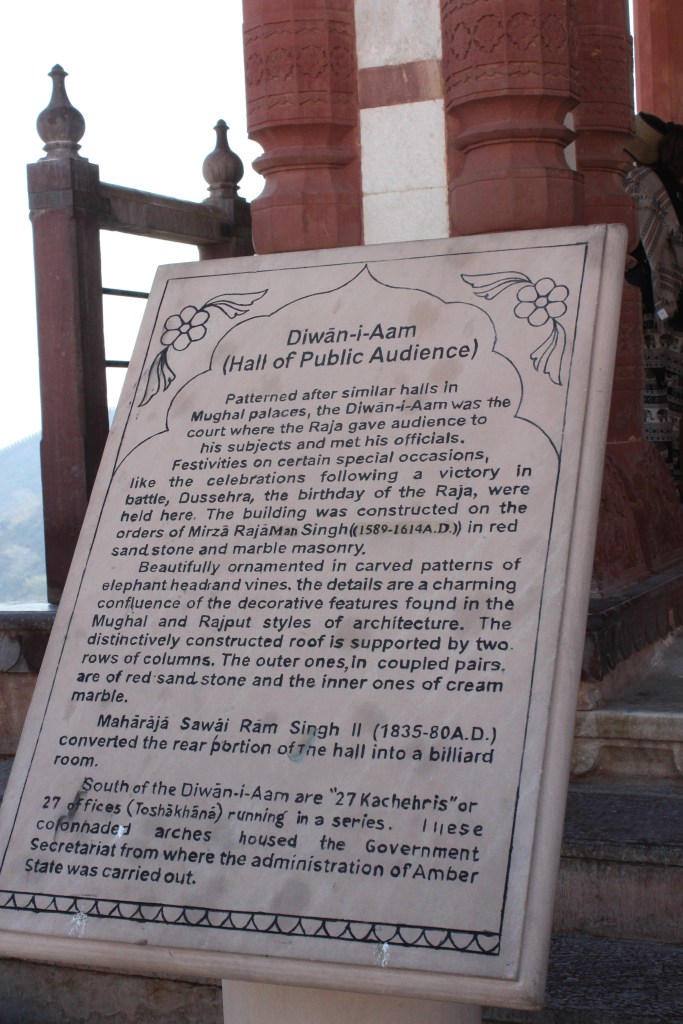 Diwān-i-Aam
(Hall of Public Audience)
Patterned after similar halls in
Mughal palaces, the Diwān-i-Aam was the
court where the Raja gave audience to
his subjects and met his officials.
Festivities on certain special occasions,
like the celebrations following a victory in
battle, Dussehra, the birthday of the Raja, were
held here. The building was constructed on the
orders of Mirzā Rajā Man Singh((1589-1614A.D.)) in red
sand stone and marble masonry.
Beautifully ornamented in carved patterns of
elephant head and vines. the details are a charming
confluence of the decorative features found in the
Mughal and Rajput styles of architecture. The
distinctively constructed roof is supported by two
rows of columns. The outer ones, in coupled pairs,
are of red sand stone and the inner ones of cream
marble.
Mahārājá Sawāi Rām Singh II (1835-80A.D.)
converted the rear portion of The hall into a billiard
room.
South of the Diwān-i-Aam are "27 Kachehris" or
27 offices (Toshākhānā) running in a series. These
colonhaded arches housed the Government
Secretariat from where the administration of Amber
State was carried out.